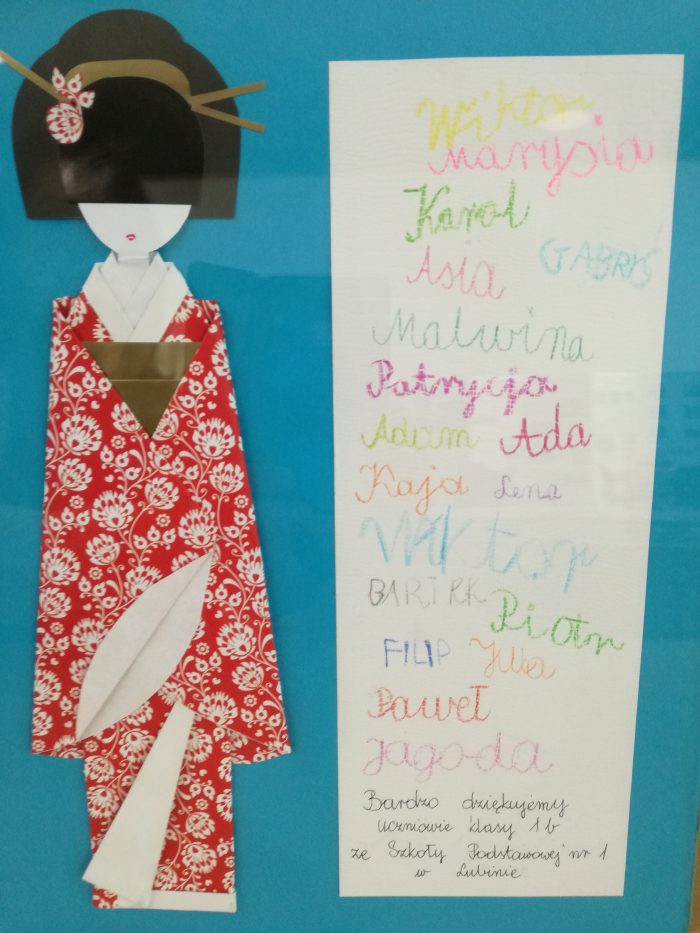 Wiktor
Marysia
Karol
GABRYŚ
Asia
Malwina
Patrycja
Adam Ada
Kaja Lena
Wiktor
BARTEK
Piotr
FILIP Julia
Paweł
Jagoda
Bardzo dziękujemy
uczniowie klasy 1 b
ze Szkoły Podstawowej nr 1
w Lubinie